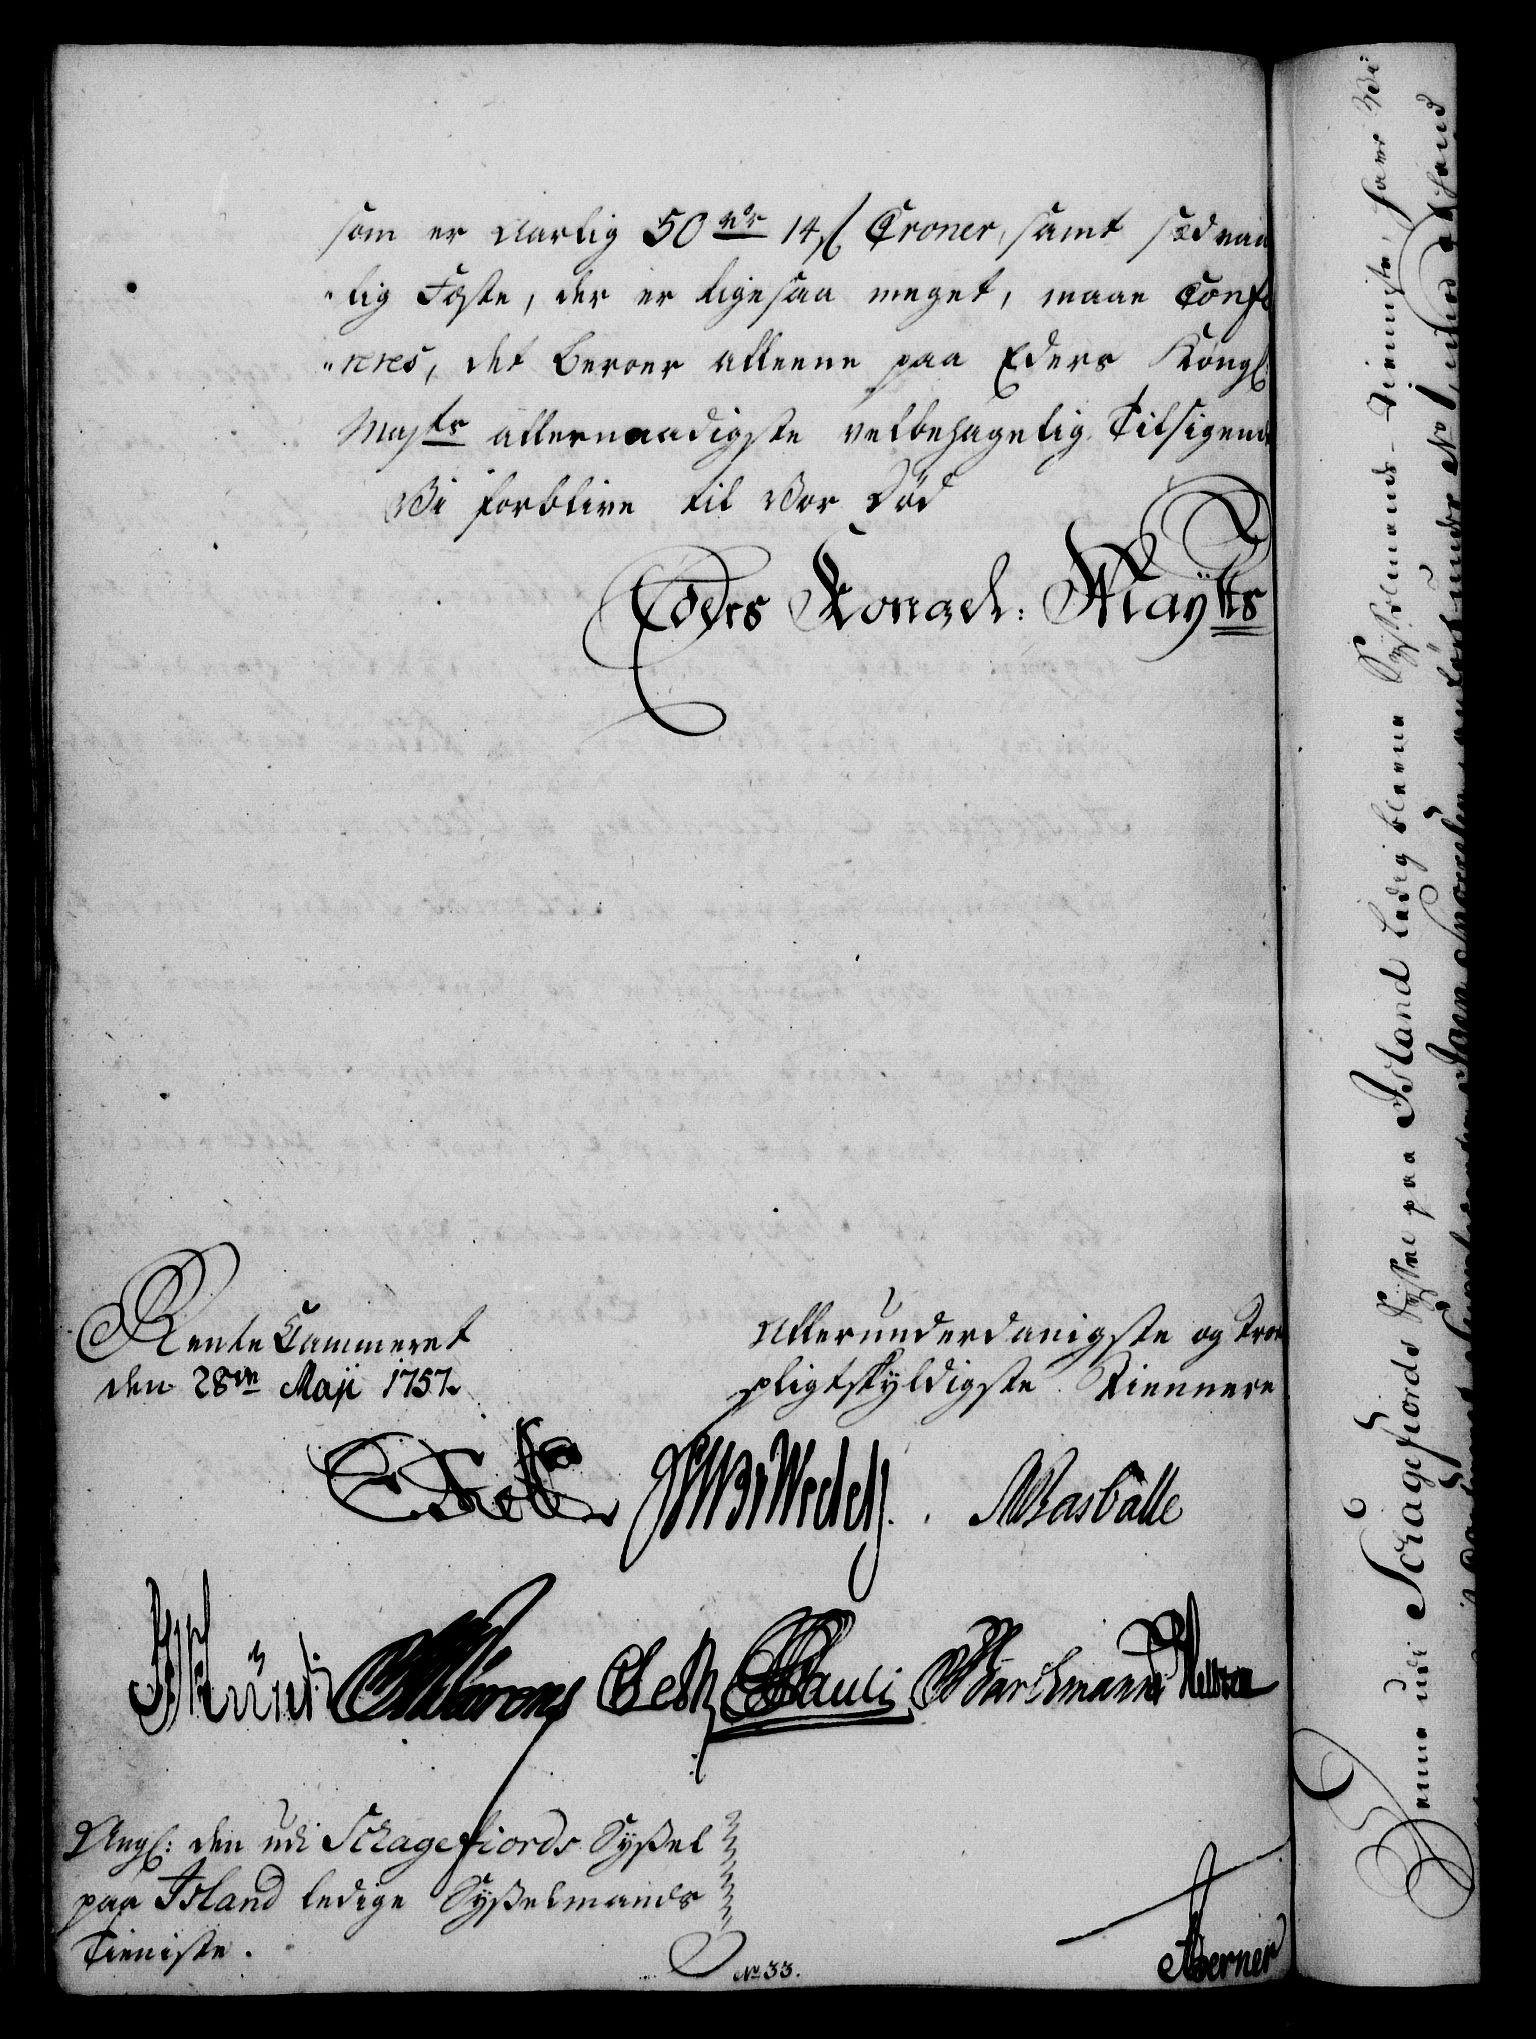 som er Aarlig 50 rdr 14 ß Croner, samt sædvan
"lig Fæste, der er ligesaa meget, maae Conf
"reres, det beroer alleene paa Eders Kongl:
Mayts allernaadigste velbehagelig Tilsigende
Vi forblive til Vor Død
Eders Kongel: Mayts
Rente Cammeret
den 28de Maji 1757.
Allerunderdanigste og Troe
pligtskyldigste Tiennere
Wedel
Rasballe
Pauli
Barchmann
Ang: den udi Schagefiords Syssel
paa Island ledige Sysselmands
Tieniste.
No 33.
Berner
Denne udi Schagefiords Syssel paa Island ledig blevne Sysselmands-Tienniste, haver Vi